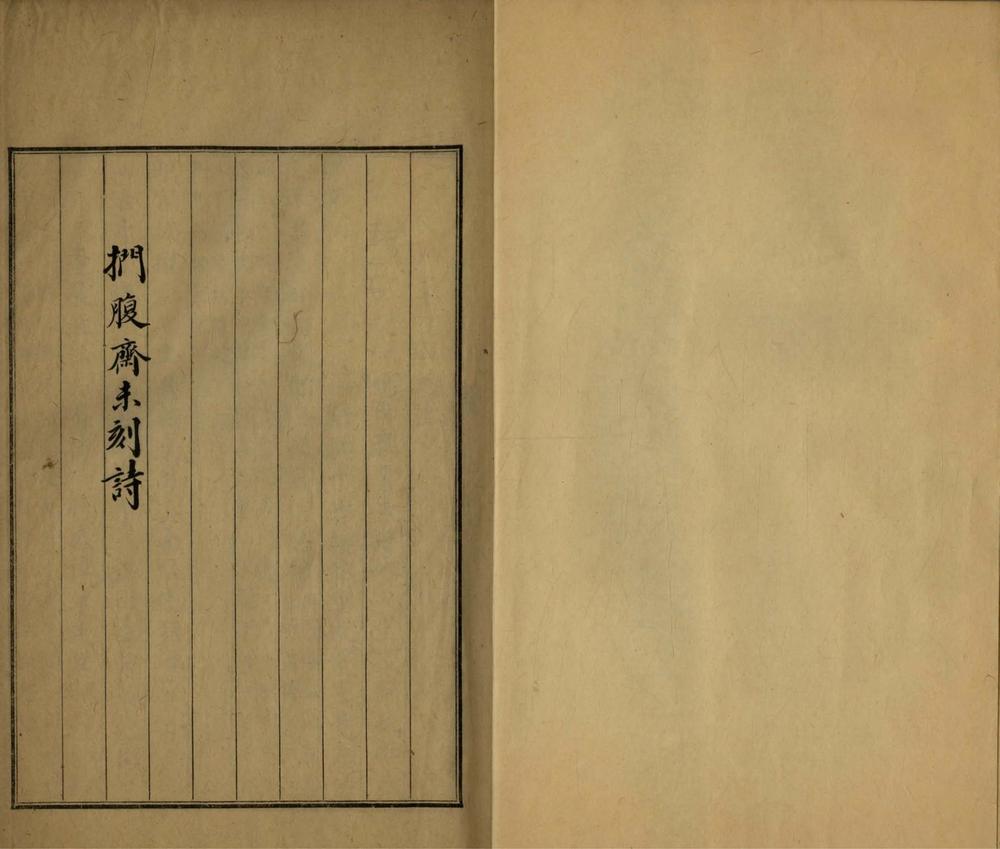 捫腹齋未刻詩